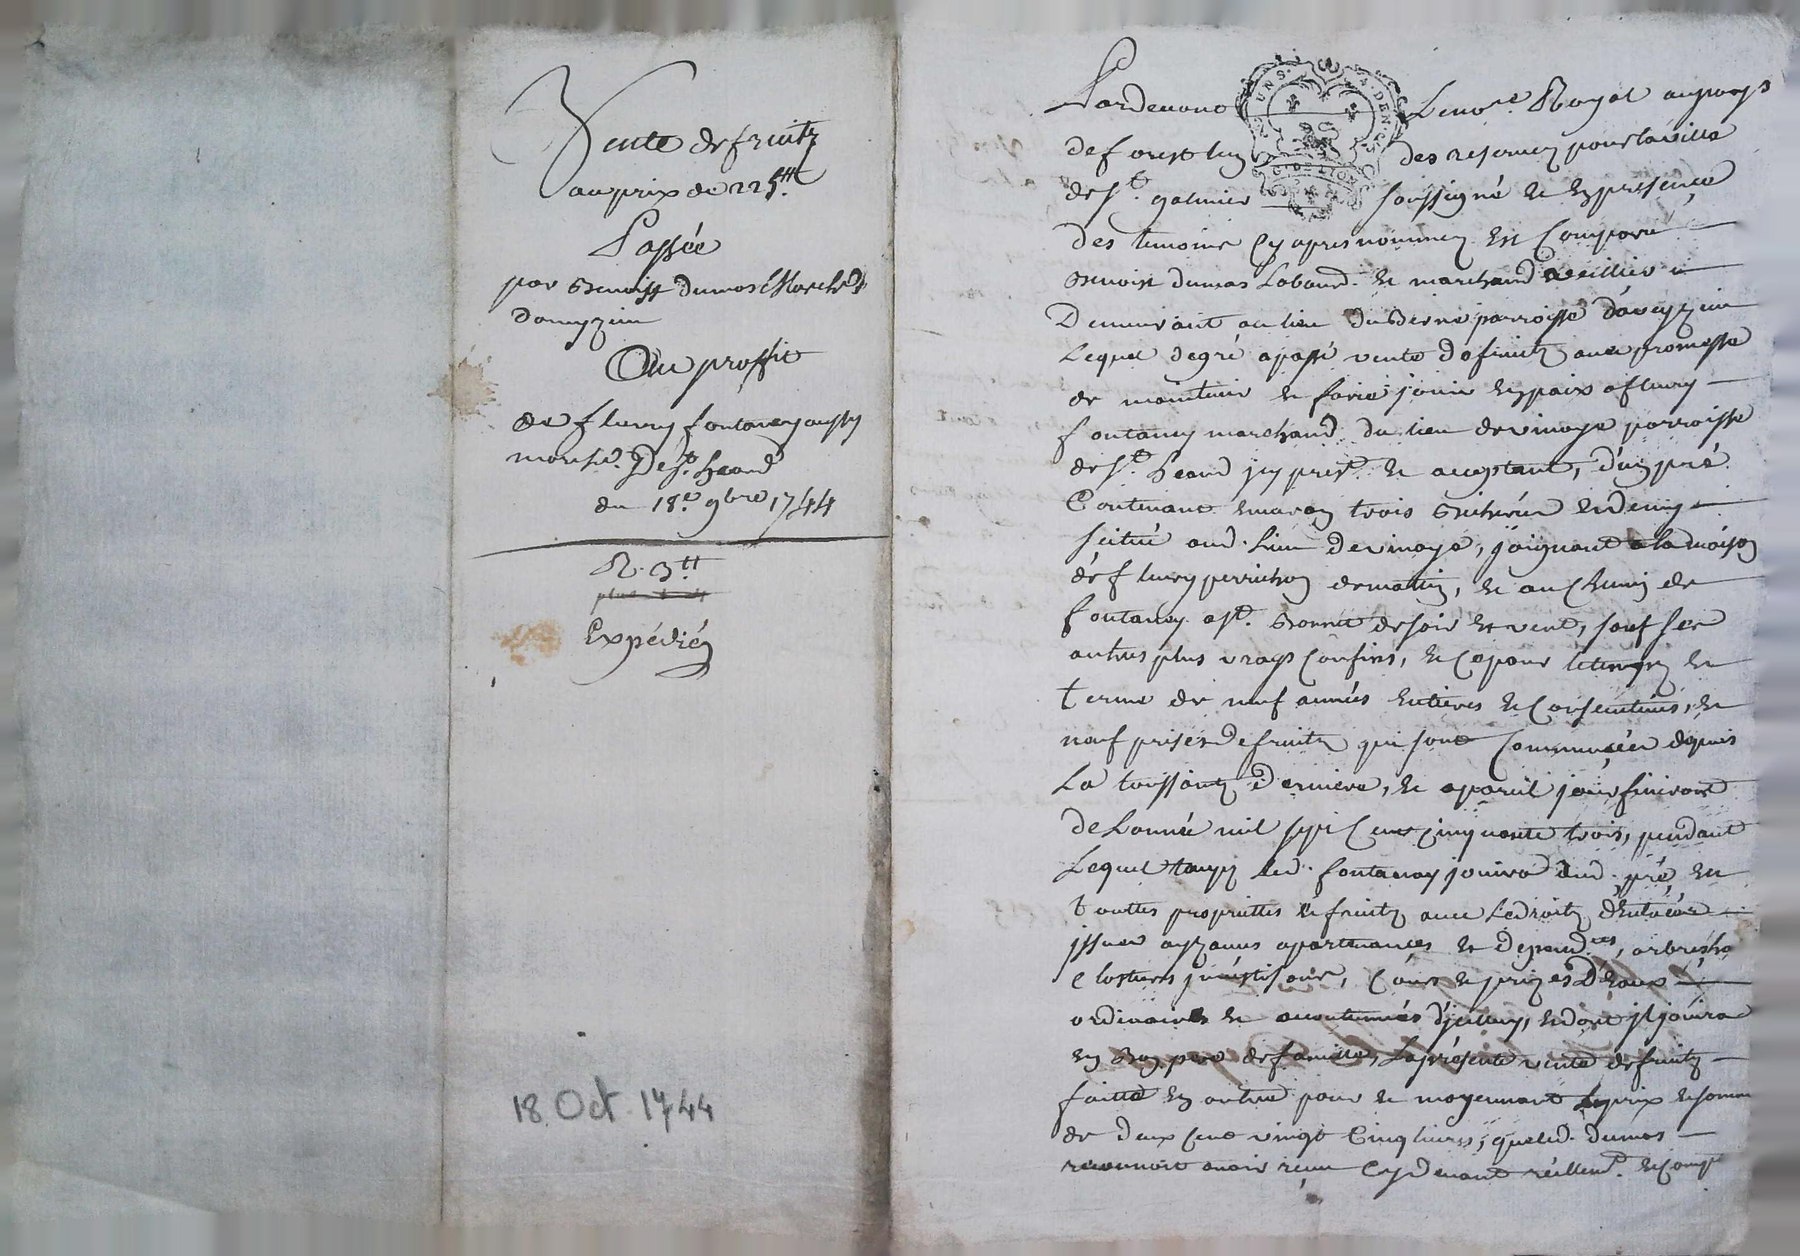 Vente de fruitz
au prix de 225.ᵗᵗ
Passée
par Benoist dumas March.d
daveyzieu
Au proffit
de fleury fontaney aussy
march.d De S.t heand
du 18.e 9bre 1744
R. 3ᵗᵗ
Expédiéz
18 Oct. 1744
Pardevant Le no.re Royal au pays
de forest l'un des reservez pour la ville
de S.t galmier soussigné Et En presence
des temoins Cy apres nommez Est Comparu
Benoist dumas Laboud. Et marchand
Demeurant au lieu du parroisse d'aveyzieu
Lequel de gré a passé vente de fruitz avec promesse
de maintenir Et faire jouir En paix a fleury
fontaney marchand du lieu de vinoys parroisse
de S.t heand jcy pres.t Et acceptant, d'un pré
Contenant Environ trois Bicherées Et demy
scitué aud. Lieu de vinoys, joignant a la maison
de fleury perrichon de matin, Et au Chemin de
fontaney de soir Et vent, sauf ses
autres plus vrays Confins, Et Ce pour le temps Et
terme de neuf années Entieres Et Consecutives, Et
neuf prises de fruitz qui sont Commencées depuis
La toussaintz Derniere, Et a pareil jour finiront
de L'année mil sept Cent Cinquante trois, pendant
Lequel temps led. fontaney jouira dud. pré En
touttes propriettes Et fruitz avec Les droitz d'Entrées
jssues aysances apartenances Et depend.ces, arbres
Clostures, Cours Et prizes D'Eaux
ordinaires Et accoutumées d'jcelluy, Et dont jl jouira
En Bon pere de famille, La présente vente de fruitz
faitte En outre pour Et moyennant Le prix Et somme
de deux Cent vingt Cinq livres, que led. dumas
reconnoit avoir reçeu Cy devant réellem.t Et Comp.t